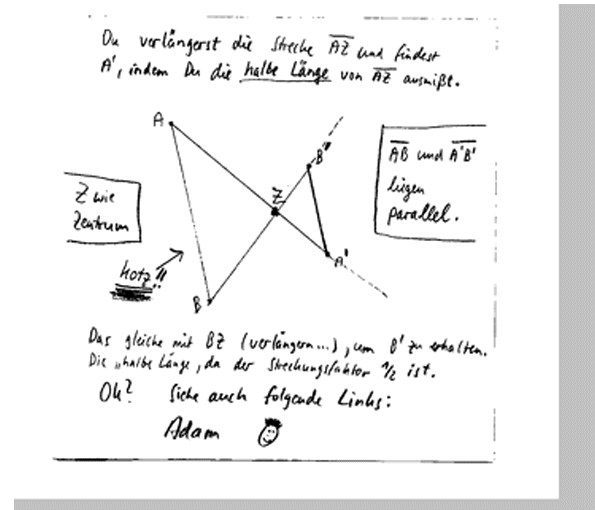 Du verlängerst die Strecke AZ und findest
A', indem Du die halbe Länge von AZ ausmißt.
A
B'
Z
AB und A'B'
liegen
parallel.
Z wie
Zentrum
A'
hotz!!
B
Das gleiche mit BZ (verlängern...), um B' zu erhalten.
Die „halbe Länge", da der Streckungsfaktor 1/2 ist.
Ok? Siehe auch folgende Links:
Adam